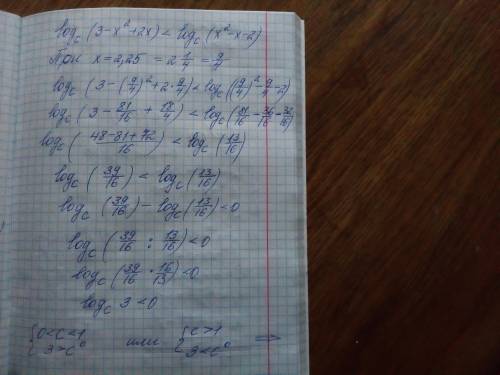 log_c (3-x²+2x) < log_c (x²-x-2)
При x=2,25 = 2 1/4 = 9/4
log_c (3-(9/4)²+2·9/4) < log_c ((9/4)²-9/4-2)
log_c (3-81/16+18/4) < log_c (81/16-36/16-32/16)
log_c ((48-81+72)/16) < log_c (13/16)
log_c (39/16) < log_c (13/16)
log_c (39/16) - log_c (13/16) < 0
log_c (39/16 : 13/16) < 0
log_c (39/16 · 16/13) < 0
log_c 3 < 0
{0<c<1 или {c>1 ⇒
{3>c⁰ {3<c⁰